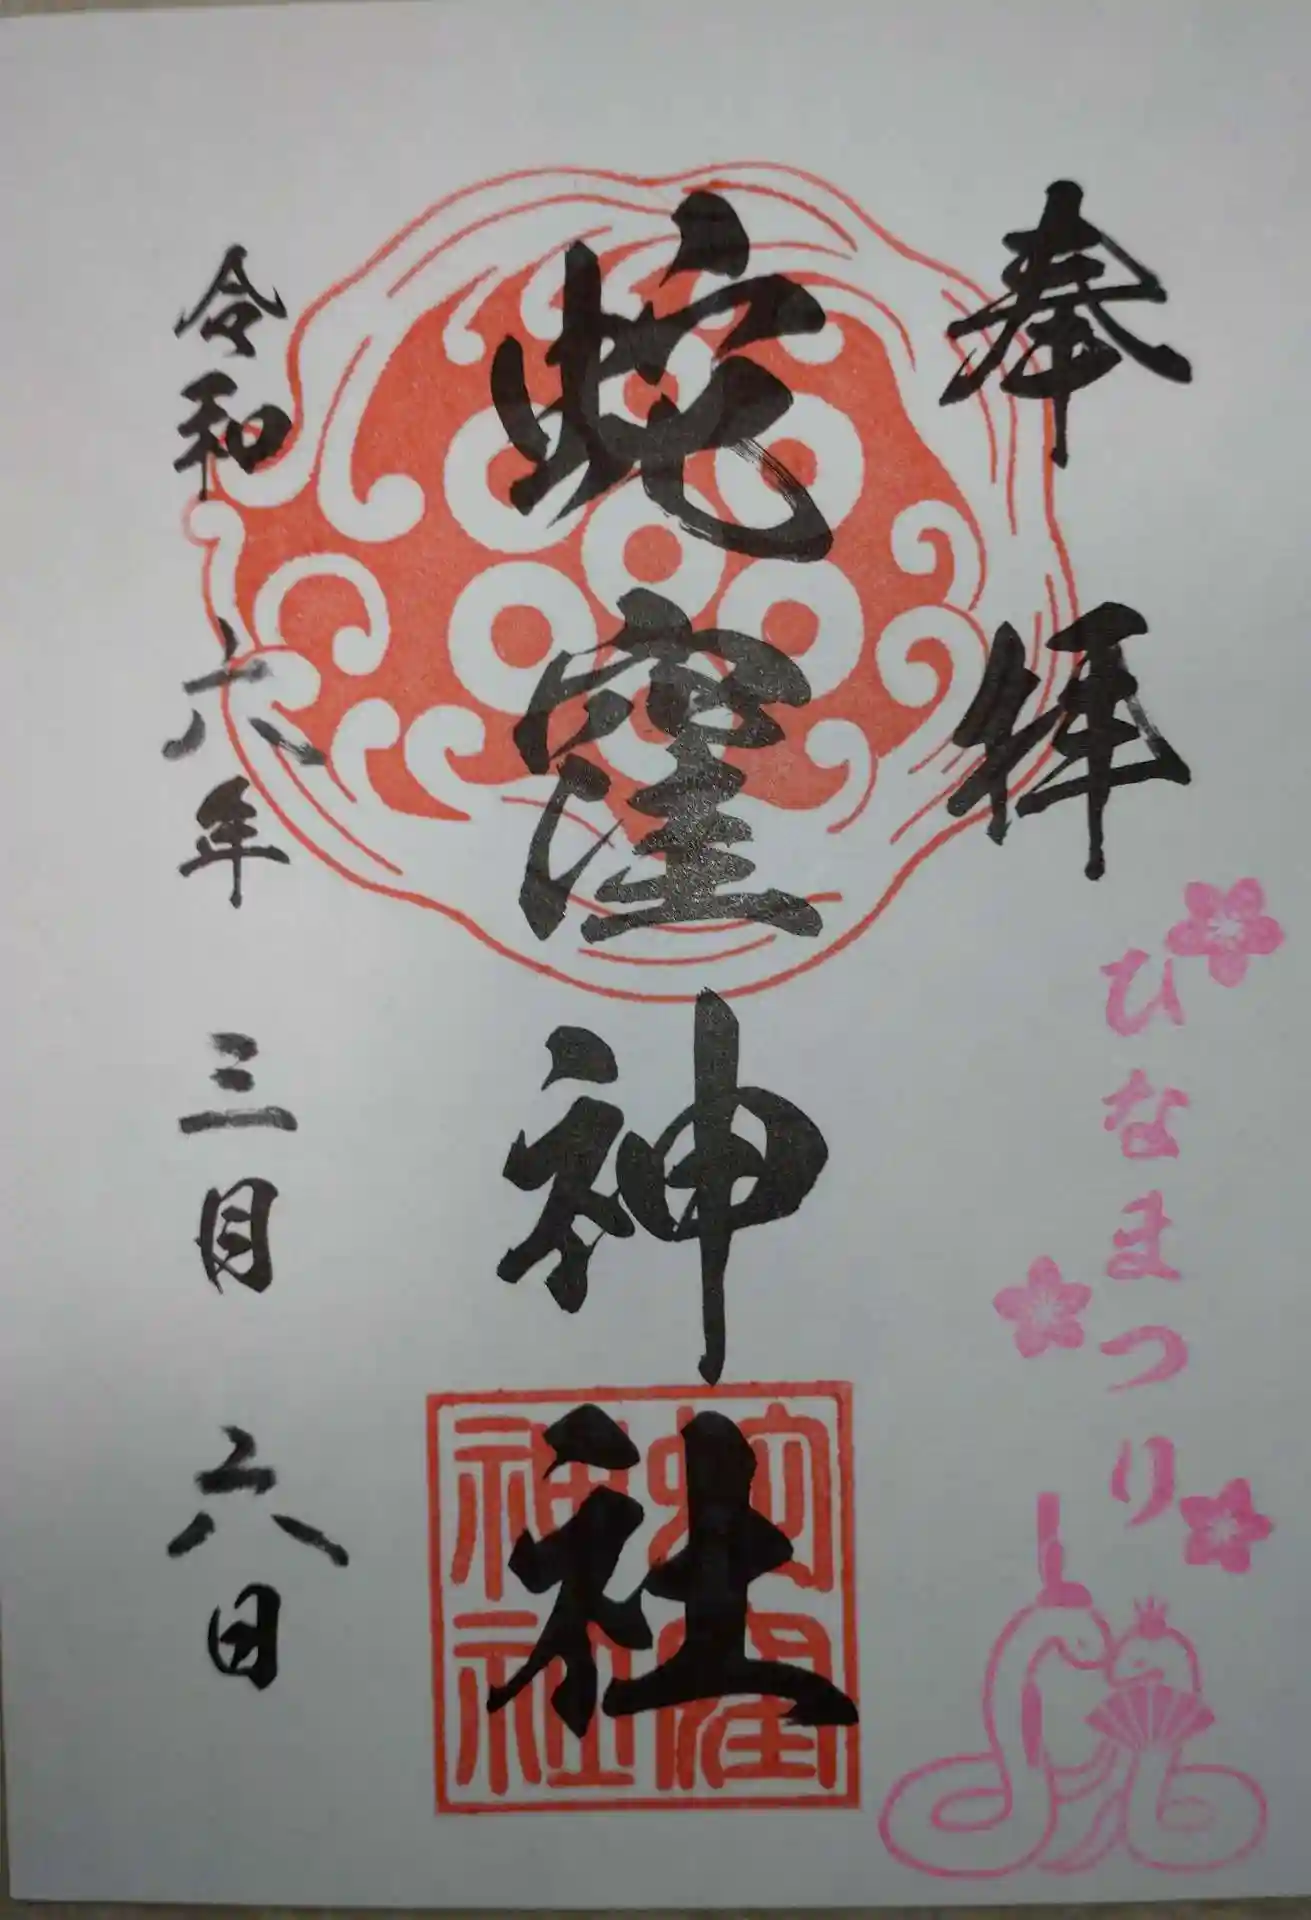 奉拝
ひなまつり
蛇窪神社
蛇窪
神社
令和六年 三月 六日